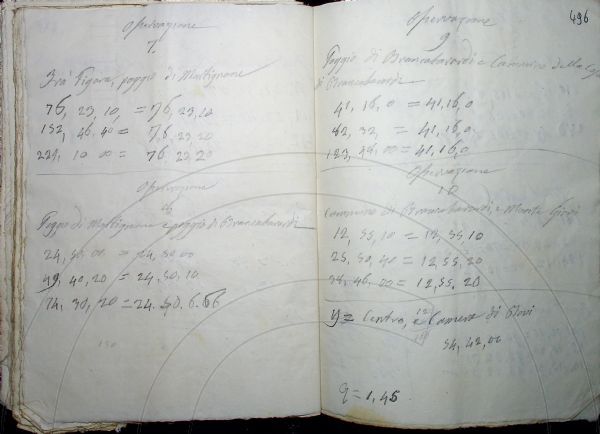 Operazione
7.
Frà Figara, poggio di Martignone
76, 23, 10, = 76, 23, 10
152, 46, 40 = 76, 23, 20
229, 10 00 = 76 23 20
Operazione
Poggio di Martignone e poggio di Brancabavardi
24, 50. 00 = 24, 50, 00
49, 40, 20 = 24, 50, 10
74, 30, 20 = 24. 50. 6. 66
150
496
Operazione
9
Poggio di Brancabavardi e Cammino della
di Brancabavardi
41, 16, 0 = 41, 16, 0
82, 32, = 41, 16, 0
123, 48, 00 = 41, 16, 0
Operazione
10
Cammino di Brancabavardi, e Monte Giovi
12, 55, 10 = 12, 55, 10
25, 50, 40 = 12, 55. 20
38, 46. 00 = 12, 55. 20
y = Centro, e Camera di Giovi
54, 42, 00
q = 1, 45